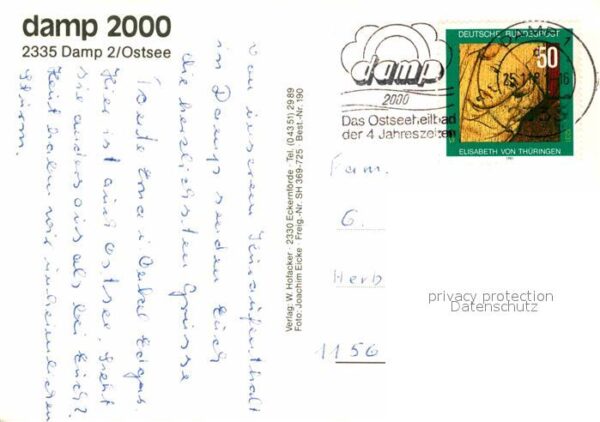 damp 2000
2335 Damp 2/Ostsee
Von unserem Kuraufenthalt
in Damp senden Euch
die herzlichsten Grüsse
Tante Erna
Hier ist auch Ostsee. Sieht
sie anders aus als bei Euch?
Zeit haben wir
Sturm.
Verlag: W. Hofacker · 2330 Eckernförde · Tel. (0 43 51) 29 89
Foto: Joachim Eicke · Freig.-Nr. SH 369-725 · Best.-Nr. 190
damp
2000
Das Ostseeheilbad
der 4 Jahreszeiten
DEUTSCHE BUNDESPOST
50
ELISABETH VON THÜRINGEN
Fam.
G.
Herb
privacy protection
Datenschutz
1156